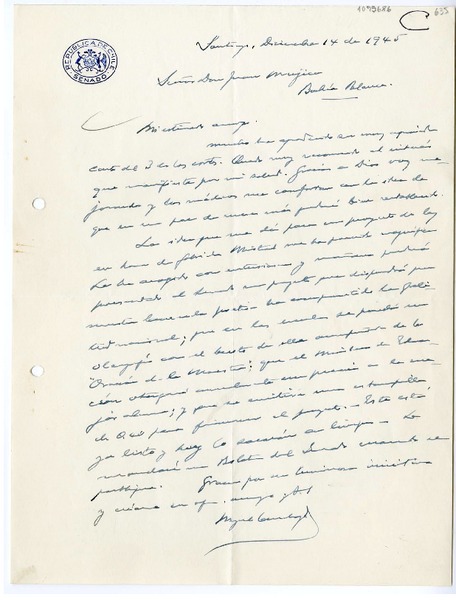 1093686
C
635
REPUBLICA DE CHILE
SENADO
Santiago, Diciembre 14 de 1945
Señor Don Juan Mujica
Bahía Blanca.
Mi estimado amigo.
mucho he agradecido su muy apreciada
carta del 3 de los ctes. Quedo muy reconocido el interés
que manifiesta por mi salud. Gracias a Dios voy me-
jorando y los médicos me conforman con la idea de
que en un par de meses más podré estar restablecido.
La idea que me da para un proyecto de ley
en honor de Gabriela Mistral me ha parecido magnífica
La he acogido con entusiasmo y mañana
presentado al Senado un proyecto que dispondrá que
nuestra laureada poetisa
nacional; que en las escuelas se ponga su
con el texto de ella
Oración de la Maestra; que el Ministerio de Educa-
ción otorgará anualmente un premio a la me-
jor alumna; y que se emitirá una estampilla
de para financiar el proyecto. Este está
ya listo y hoy lo sacarán en limpio. Le
mandaré un Boletín del Senado cuando se
publique. Gracias por su luminosa iniciativa
y créame su afmo. amigo y